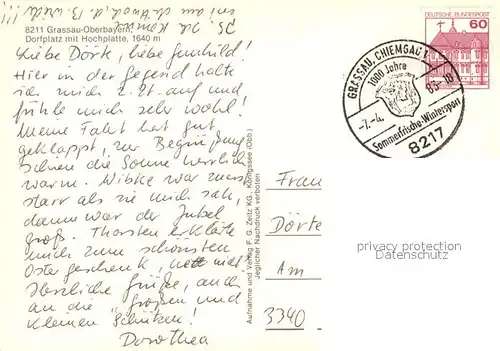 8211 Grassau-Oberbayern,
Dorfplatz mit Hochplatte, 1640 m
Liebe Dörte, liebe Gunhild!
Hier in der Gegend halte
ich mich z.Zt. auf und
fühle mich sehr wohl!
Meine Fahrt hat gut
geklappt, zur Begrüßung
schien die Sonne herrlich
warm. Wibke war zuerst
starr als sie mich sah,
dann war der Jubel
groß. Thorsten erklärte
mich zum schönsten
Ostergeschenk, nett
Herzliche Grüße, auch
an die "großen und
kleinen Schützen!
Dorothea
Aufnahme und Verlag F. G. Zeitz KG., Königssee (Obb.)
Jeglicher Nachdruck verboten
DEUTSCHE BUNDESPOST
60
GRASSAU, CHIEMGAU
1000 Jahre
-7.-4.
83-18
Sommerfrische-Wintersport
8217
Frau
Dörte
Am
3340
privacy protection
Datenschutz